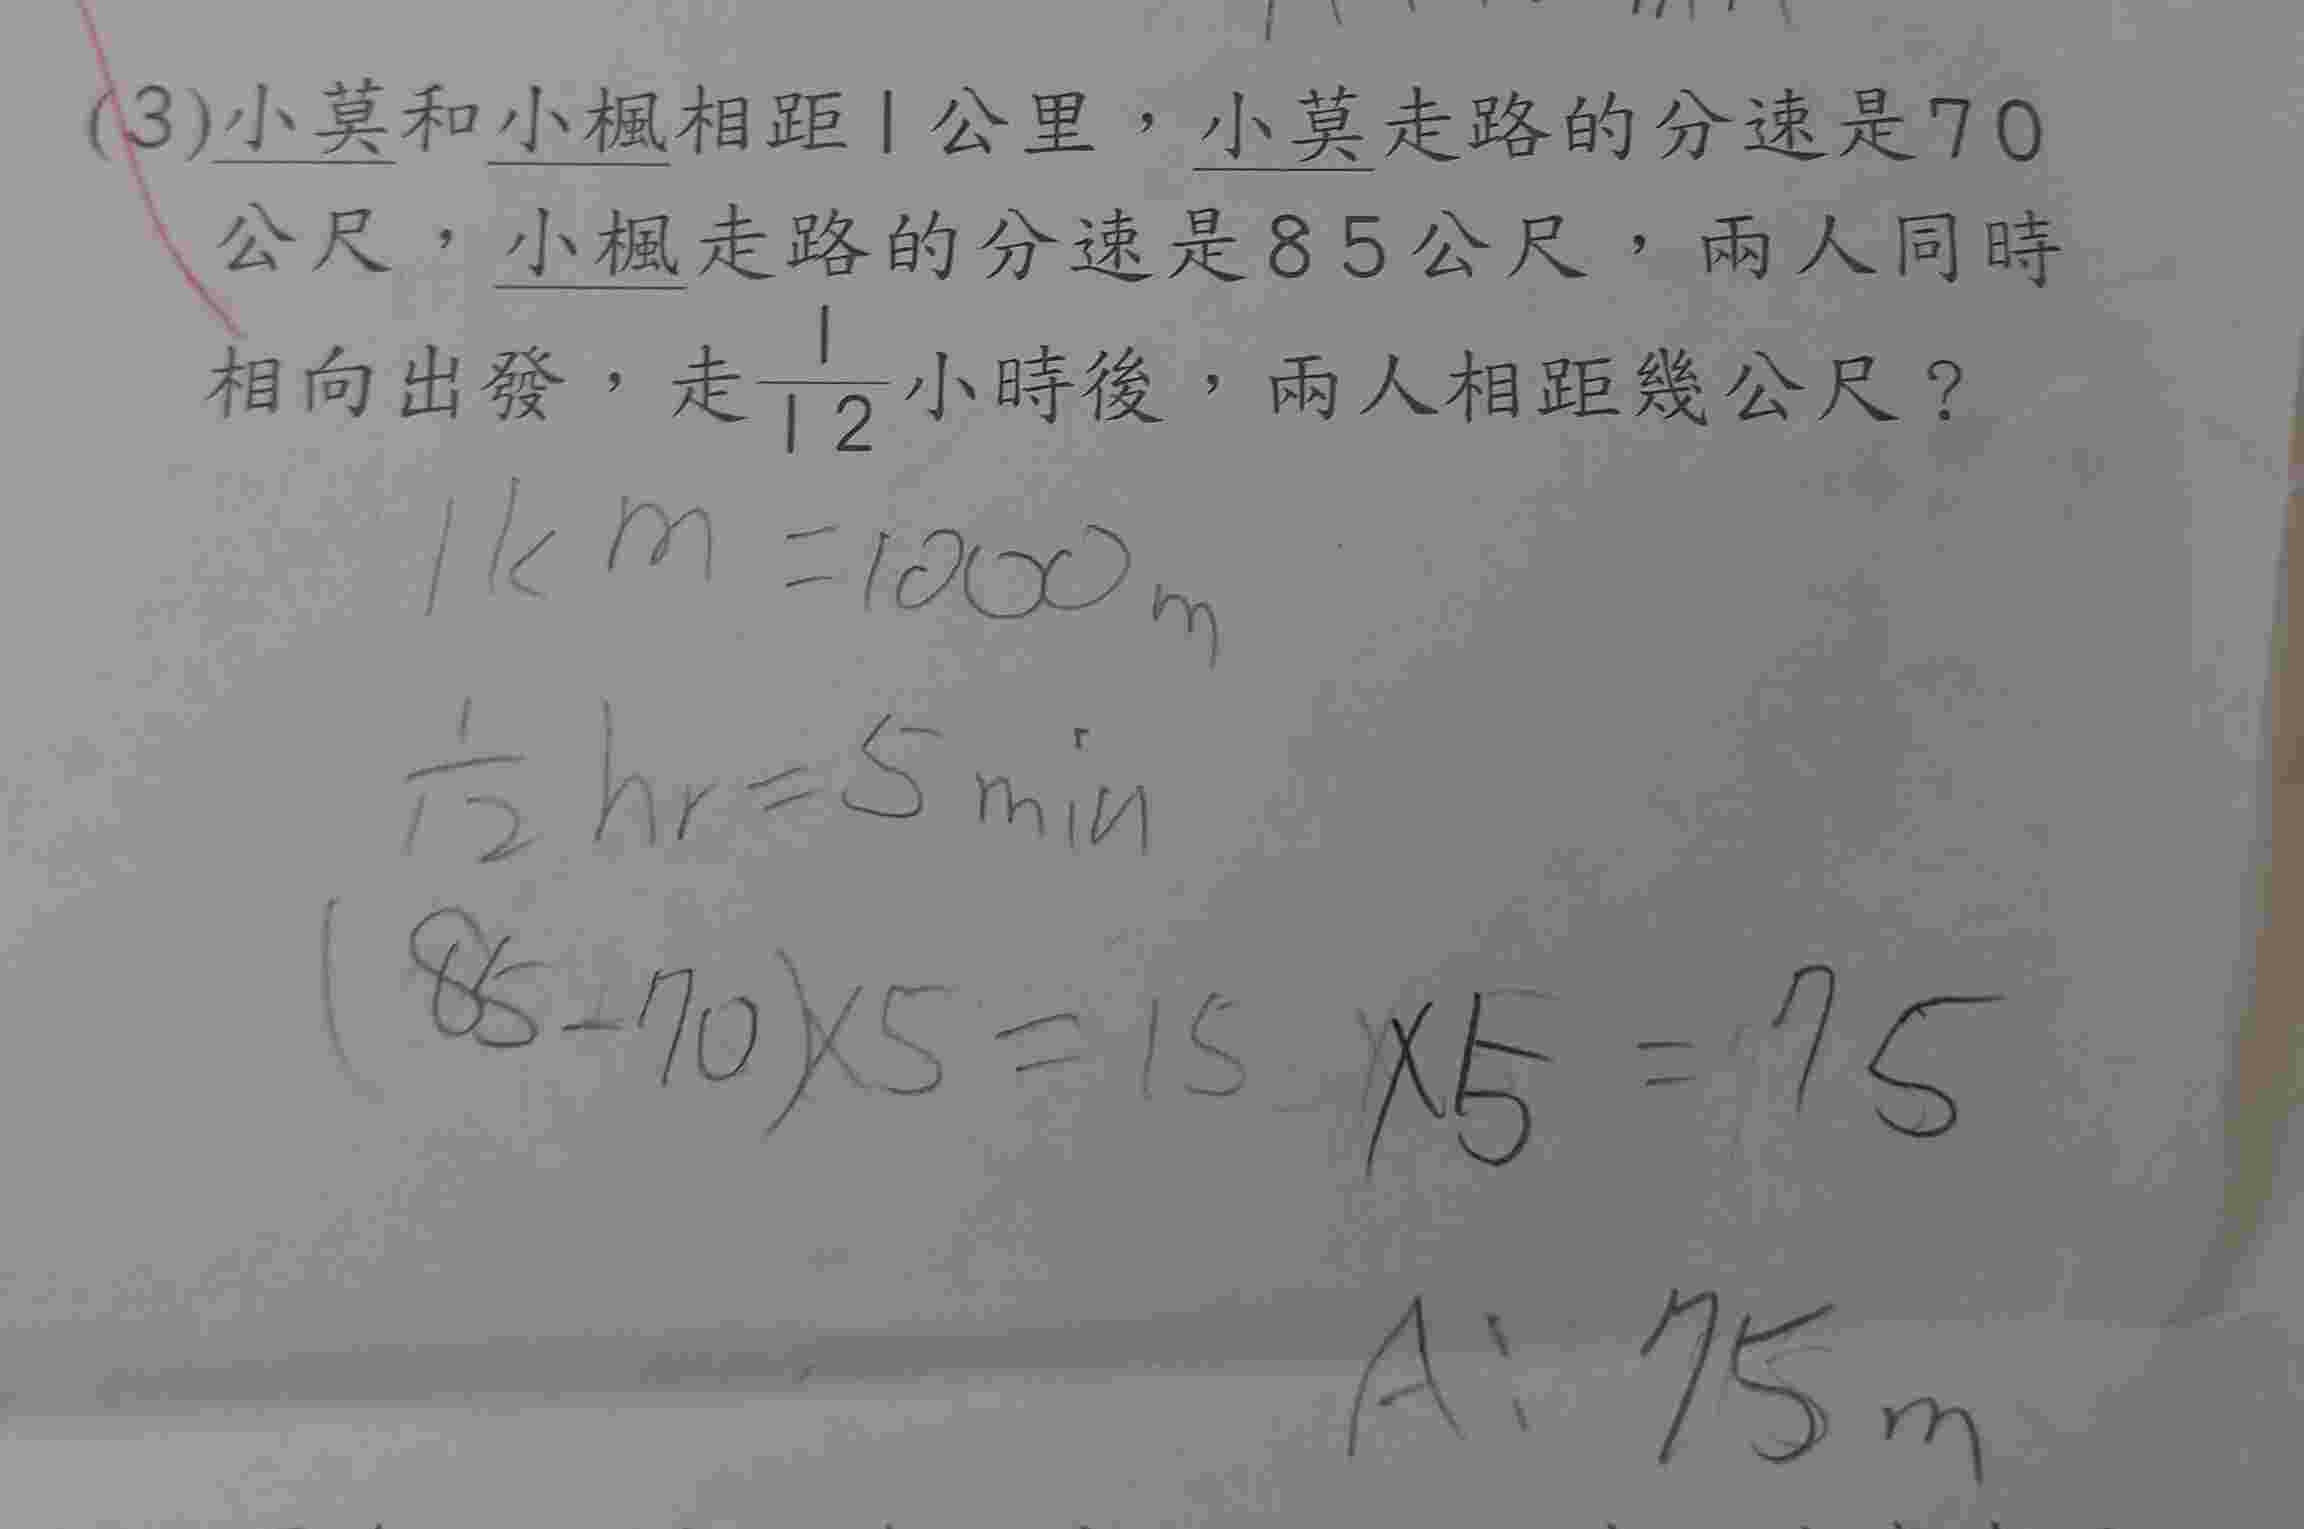 (3)小莫和小楓相距1公里，小莫走路的分速是70
公尺，小楓走路的分速是85公尺，兩人同時
相向出發，走1/12小時後，兩人相距幾公尺？
1km=1000m
1/12 hr=5min
(85-70)×5=15×5=75
A: 75m